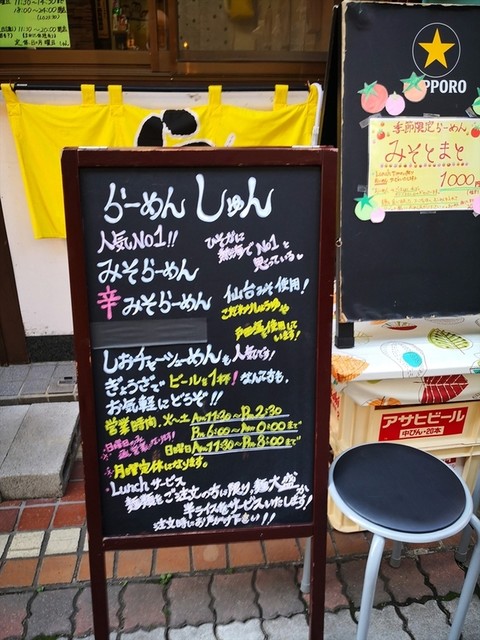 定休日 月曜日
SAPPORO
季節限定らーめん
みそとまと
1000円
らーめん しゅん
人気No1!!
ひそかに
No1と
思っている
みそらーめん
辛みそらーめん
仙台みそ使用!
こだわりしょうゆや
使用して
います!
しおチャーシューめんも人気です!
ぎょうざでビールを1杯!なんても。
お気軽にどうぞ!!
営業時間、火〜土 Am11:30〜Pm2:30
Pm6:00〜Am0:00まで
日曜日 Am11:30〜Pm8:00まで
※月曜定休になります。
Lunchサービス
麺類をご注文の方に限り、麺大盛か
半ライスをサービスいたします!
注文時にお声がけ下さい!!
アサヒビール
中びん・20本